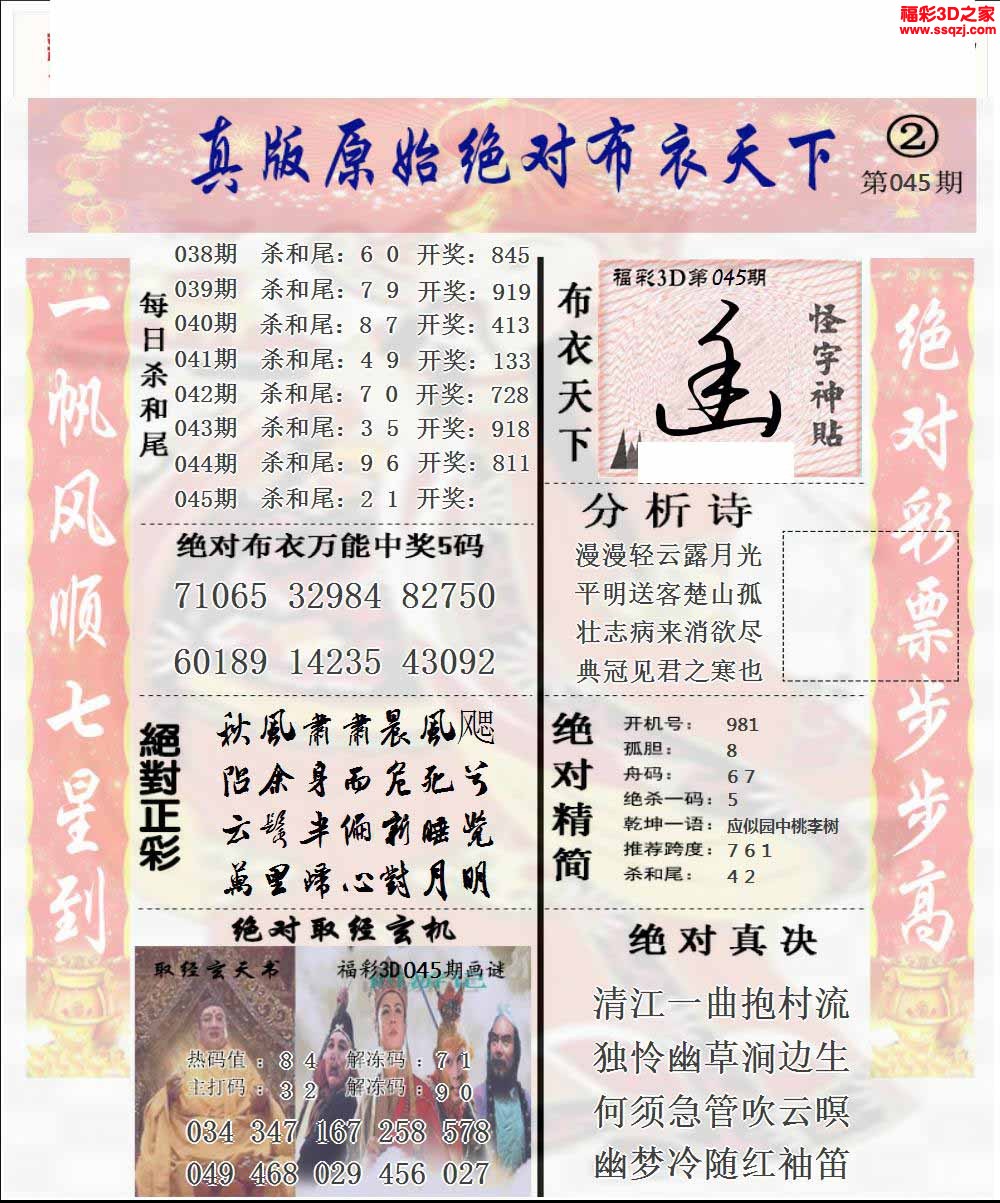 福彩3D之家
www.ssqzj.com
真版原始绝对布衣天下
②
第045期
一帆风顺七星到
每日杀和尾
038期 杀和尾：6 0 开奖：845
039期 杀和尾：7 9 开奖：919
040期 杀和尾：8 7 开奖：413
041期 杀和尾：4 9 开奖：133
042期 杀和尾：7 0 开奖：728
043期 杀和尾：3 5 开奖：918
044期 杀和尾：9 6 开奖：811
045期 杀和尾：2 1 开奖：
绝对布衣万能中奖5码
71065 32984 82750
60189 14235 43092
絕對正彩
秋風肅肅晨風飔
陷余身而危死兮
云鬓半偏新睡觉
萬里歸心對月明
绝对取经玄机
取经玄天书
福彩3D045期画谜
热码值：8 4 解冻码：7 1
主打码：3 2 解冻码：9 0
034 347 167 258 578
049 468 029 456 027
布衣天下
福彩3D第045期
怪字神貼
分析诗
漫漫轻云露月光
平明送客楚山孤
壮志病来消欲尽
典冠见君之寒也
绝对精简
开机号：981
孤胆：8
舟码：6 7
绝杀一码：5
乾坤一语：应似园中桃李树
推荐跨度：7 6 1
杀和尾：4 2
绝对真决
清江一曲抱村流
独怜幽草涧边生
何须急管吹云暝
幽梦冷随红袖笛
绝对彩票步步高